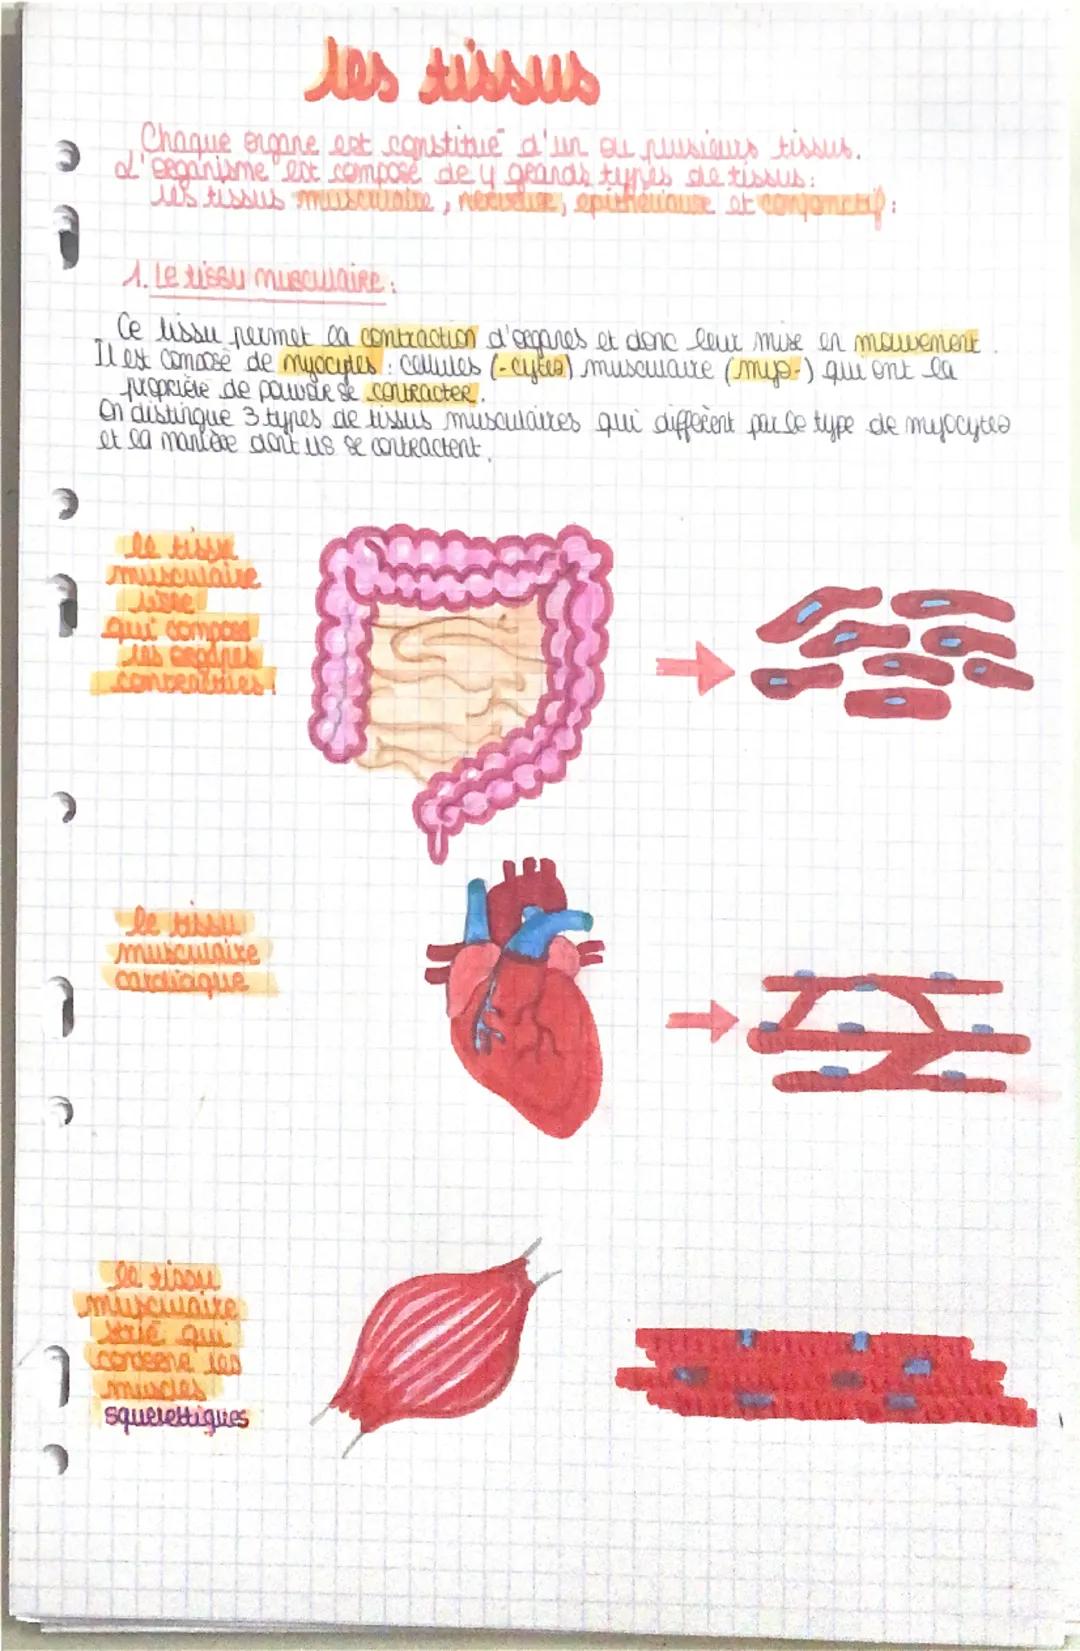 les tissus
Chaque organe est constitué d'un ou plusieurs tissus.
L'organisme est composé de 4 grands types de tissus:
les tissus musculaire, nerveux, épithéliaux et conjonctif:
1. Le tissu musculaire:
Ce tissu permet la contraction d'organes et donc leur mise en mouvement.
Il est composé de myocytes: cellules (-cytes) musculaire (myo-) qui ont la
propriété de pouvoir se contracter.
On distingue 3 types de tissus musculaires qui diffèrent par le type de myocytes
et la manière dont ils se contractent.
le tissu
musculaire
lisse
qui compose
les organes
contractiles!
le tissu
musculaire
cardiaque
le tissu
musculaire
strié qui
concerne les
muscles
squelettiques